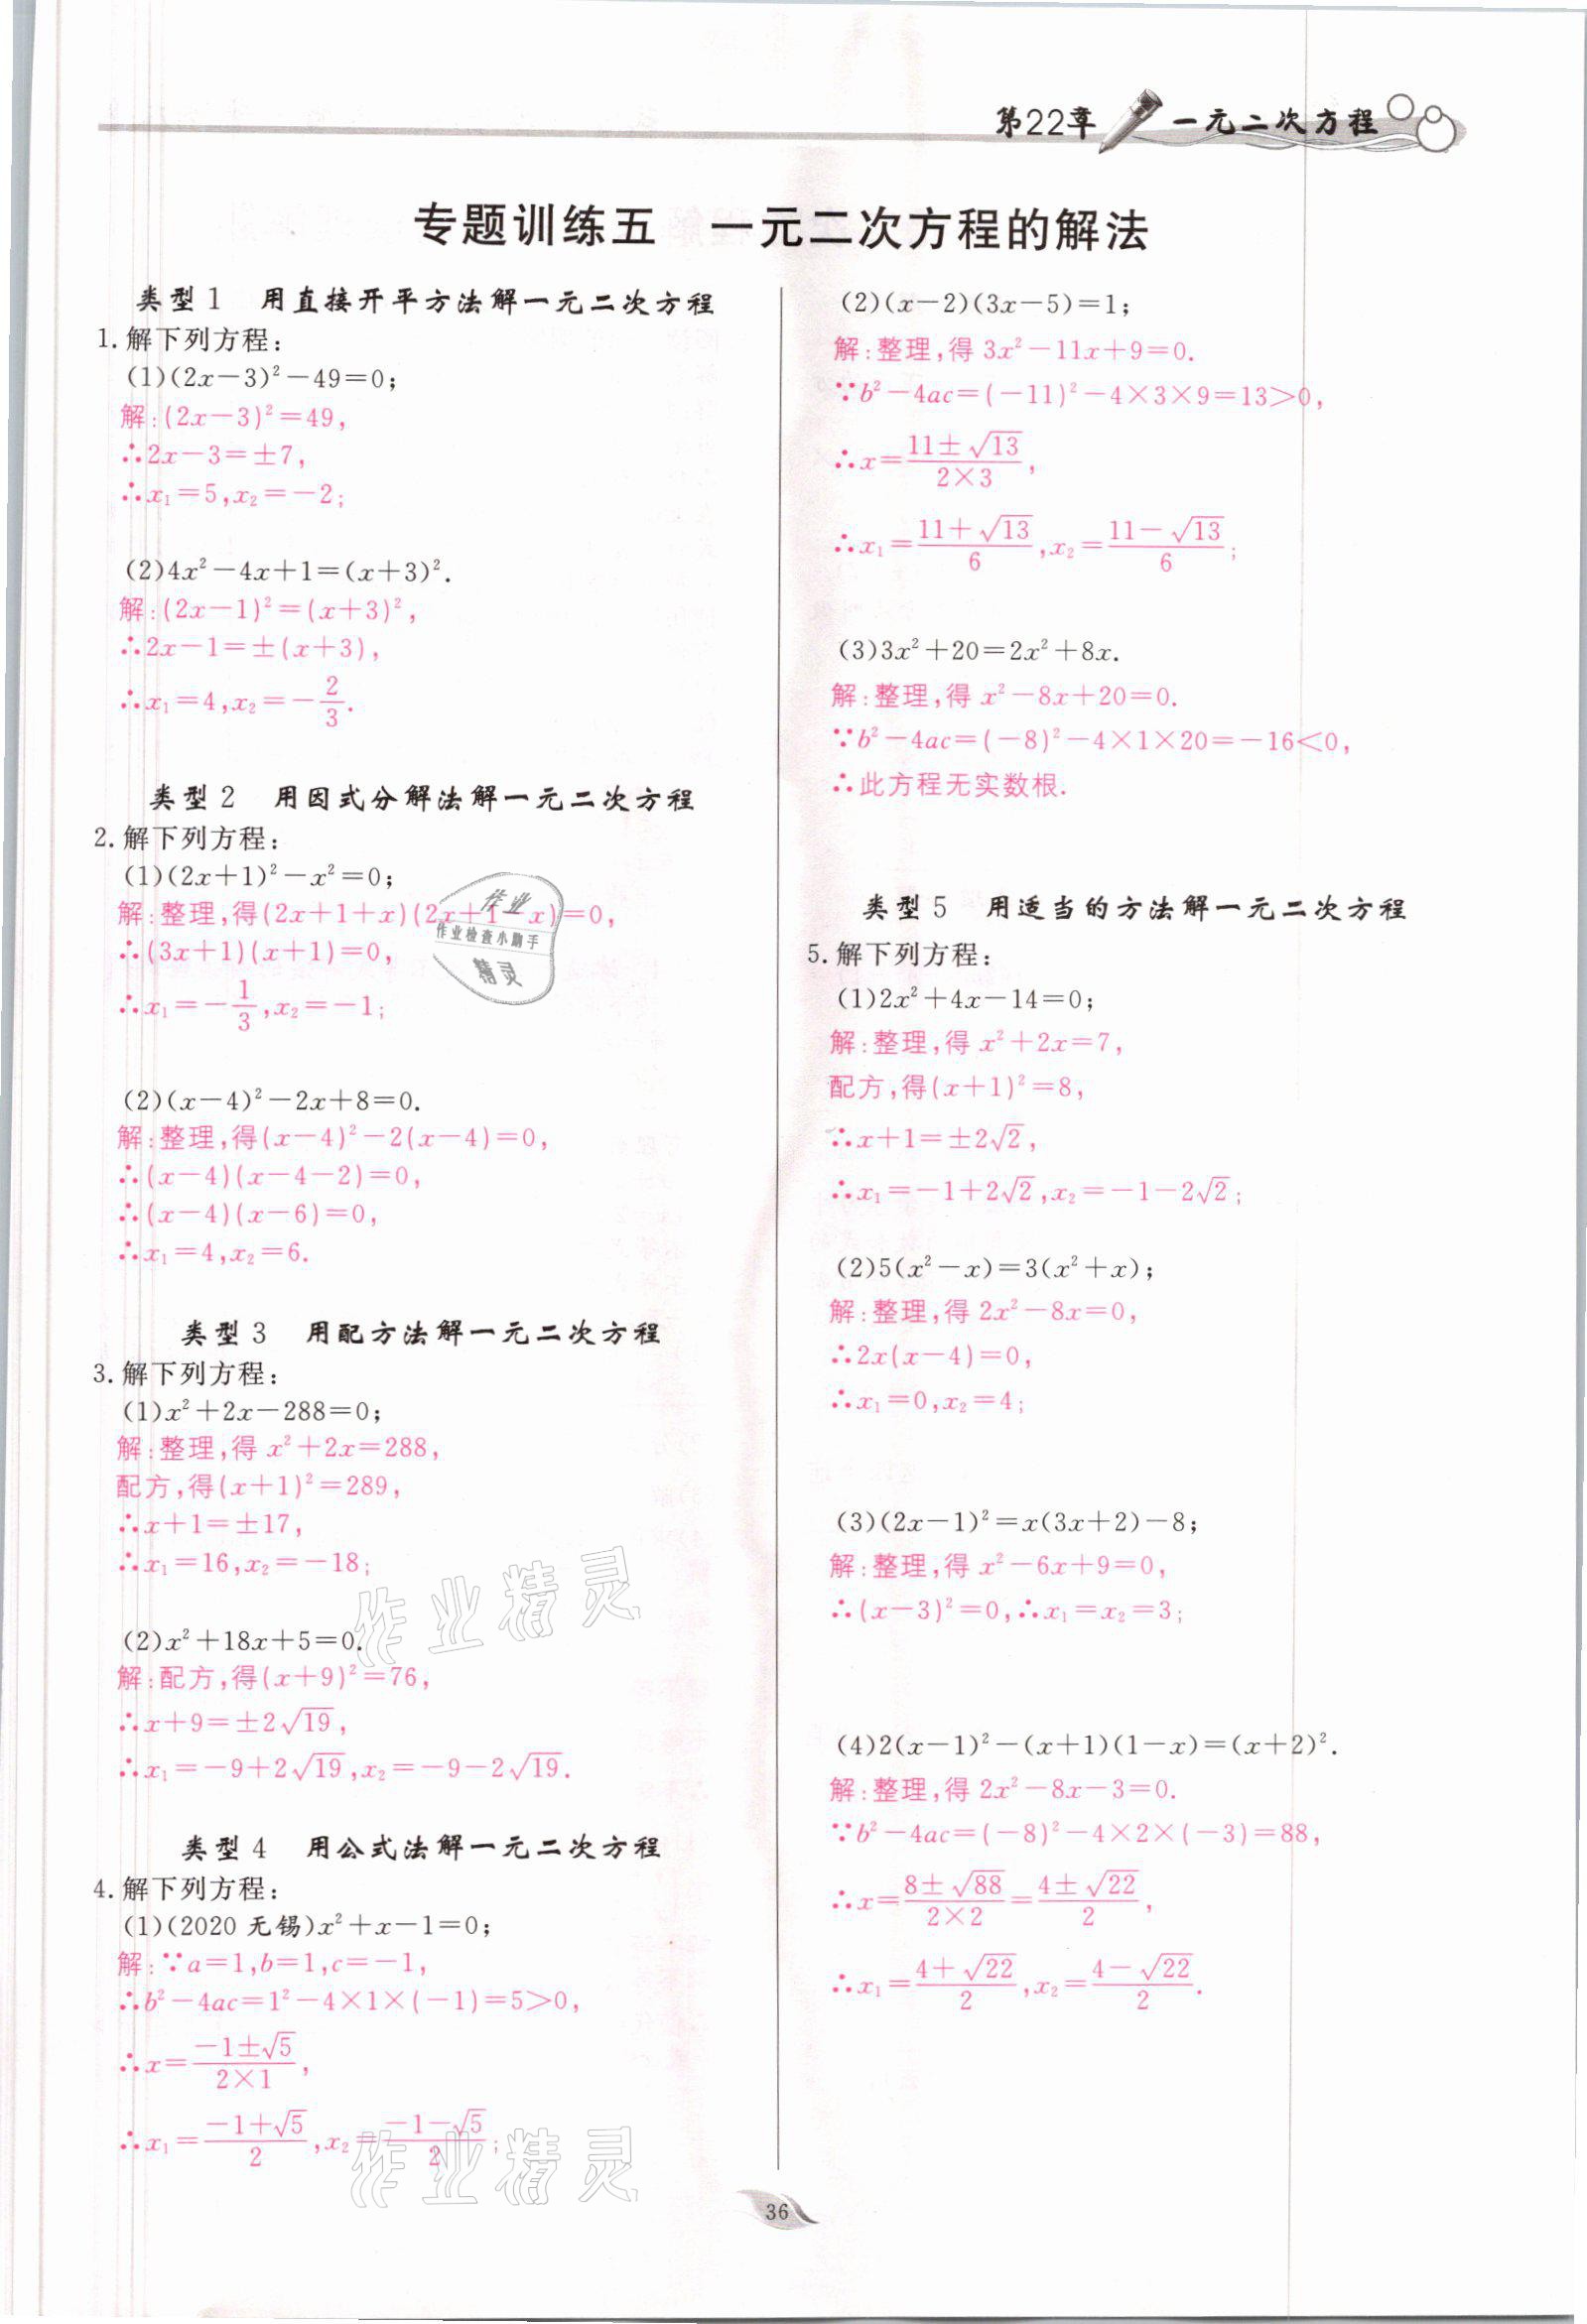 第22章 一元二次方程
专题训练五 一元二次方程的解法
类型1 用直接开平方法解一元二次方程
1.解下列方程:
(1)(2x-3)²-49=0;
解:(2x-3)²=49,
∴2x-3=±7,
∴x₁=5,x₂=-2;
(2)4x²-4x+1=(x+3)².
解:(2x-1)²=(x+3)²,
∴2x-1=±(x+3),
∴x₁=4,x₂=-2/3.
类型2 用因式分解法解一元二次方程
2.解下列方程:
(1)(2x+1)²-x²=0;
解:整理,得(2x+1+x)(2x+1-x)=0,
∴(3x+1)(x+1)=0,
∴x₁=-1/3,x₂=-1;
(2)(x-4)²-2x+8=0.
解:整理,得(x-4)²-2(x-4)=0,
∴(x-4)(x-4-2)=0,
∴(x-4)(x-6)=0,
∴x₁=4,x₂=6.
类型3 用配方法解一元二次方程
3.解下列方程:
(1)x²+2x-288=0;
解:整理,得x²+2x=288,
配方,得(x+1)²=289,
∴x+1=±17,
∴x₁=16,x₂=-18;
(2)x²+18x+5=0.
解:配方,得(x+9)²=76,
∴x+9=±2√19,
∴x₁=-9+2√19,x₂=-9-2√19.
类型4 用公式法解一元二次方程
4.解下列方程:
(1)(2020 无锡)x²+x-1=0;
解:∵a=1,b=1,c=-1,
∴b²-4ac=1²-4×1×(-1)=5>0,
∴x=(-1±√5)/(2×1),
∴x₁=(-1+√5)/2,x₂=(-1-√5)/2;
(2)(x-2)(3x-5)=1;
解:整理,得3x²-11x+9=0.
∵b²-4ac=(-11)²-4×3×9=13>0,
∴x=(11±√13)/(2×3),
∴x₁=(11+√13)/6,x₂=(11-√13)/6;
(3)3x²+20=2x²+8x.
解:整理,得x²-8x+20=0.
∵b²-4ac=(-8)²-4×1×20=-16<0,
∴此方程无实数根.
类型5 用适当的方法解一元二次方程
5.解下列方程:
(1)2x²+4x-14=0;
解:整理,得x²+2x=7,
配方,得(x+1)²=8,
∴x+1=±2√2,
∴x₁=-1+2√2,x₂=-1-2√2;
(2)5(x²-x)=3(x²+x);
解:整理,得2x²-8x=0,
∴2x(x-4)=0,
∴x₁=0,x₂=4;
(3)(2x-1)²=x(3x+2)-8;
解:整理,得x²-6x+9=0,
∴(x-3)²=0,∴x₁=x₂=3;
(4)2(x-1)²-(x+1)(1-x)=(x+2)².
解:整理,得2x²-8x-3=0.
∵b²-4ac=(-8)²-4×2×(-3)=88,
∴x=(8±√88)/(2×2)=(4±√22)/2,
∴x₁=(4+√22)/2,x₂=(4-√22)/2.
36
作业
作业检查小助手
精灵
作业精灵
作业精灵